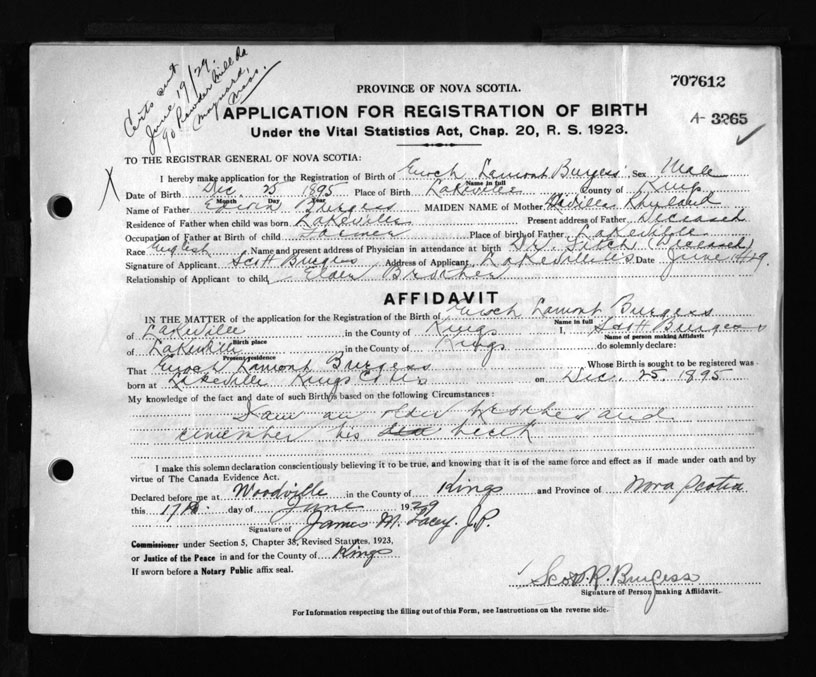 Certs sent
June 19/29.
90 Powder Mill Rd
Maynard,
Mass.
707612
PROVINCE OF NOVA SCOTIA.
APPLICATION FOR REGISTRATION OF BIRTH
A- 3265
Under the Vital Statistics Act, Chap. 20, R. S. 1923.
TO THE REGISTRAR GENERAL OF NOVA SCOTIA:
I hereby make application for the Registration of Birth of Enoch Lamont Burgess Sex Male
Name in full
Date of Birth Dec. 25 1895 Place of Birth Lakeville County of Kings
Month Day Year
Name of Father Burgess MAIDEN NAME of Mother
Residence of Father when child was born Lakeville Present address of Father Deceased
Occupation of Father at Birth of child Farmer Place of birth of Father Lakeville
Race English Name and present address of Physician in attendance at birth Dr. Fitch (Deceased)
Signature of Applicant Scott Burgess Address of Applicant Lakeville Date June 29.
Relationship of Applicant to child Elder Brother
AFFIDAVIT
IN THE MATTER of the application for the Registration of the Birth of Enoch Lamont Burgess
Name in full
of Lakeville in the County of Kings I, Scott Burgess
Birth place Name of person making Affidavit
of Lakeville in the County of Kings do solemnly declare:
Present residence
That Enoch Lamont Burgess Whose Birth is sought to be registered was
born at Lakeville Kings Co. N.S on Dec. 25. 1895
My knowledge of the fact and date of such Birth is based on the following Circumstances:
I am an older brother and
remember his birth
I make this solemn declaration conscientiously believing it to be true, and knowing that it is of the same force and effect as if made under oath and by
virtue of The Canada Evidence Act.
Declared before me at Woodville in the County of Kings and Province of Nova Scotia
this 17th. day of June 1929
Signature of James M. Lacey. J.P.
Commissioner under Section 5, Chapter 38, Revised Statutes, 1923,
or Justice of the Peace in and for the County of Kings
If sworn before a Notary Public affix seal.
Scott R. Burgess
Signature of Person making Affidavit.
For Information respecting the filling out of this Form, see Instructions on the reverse side.